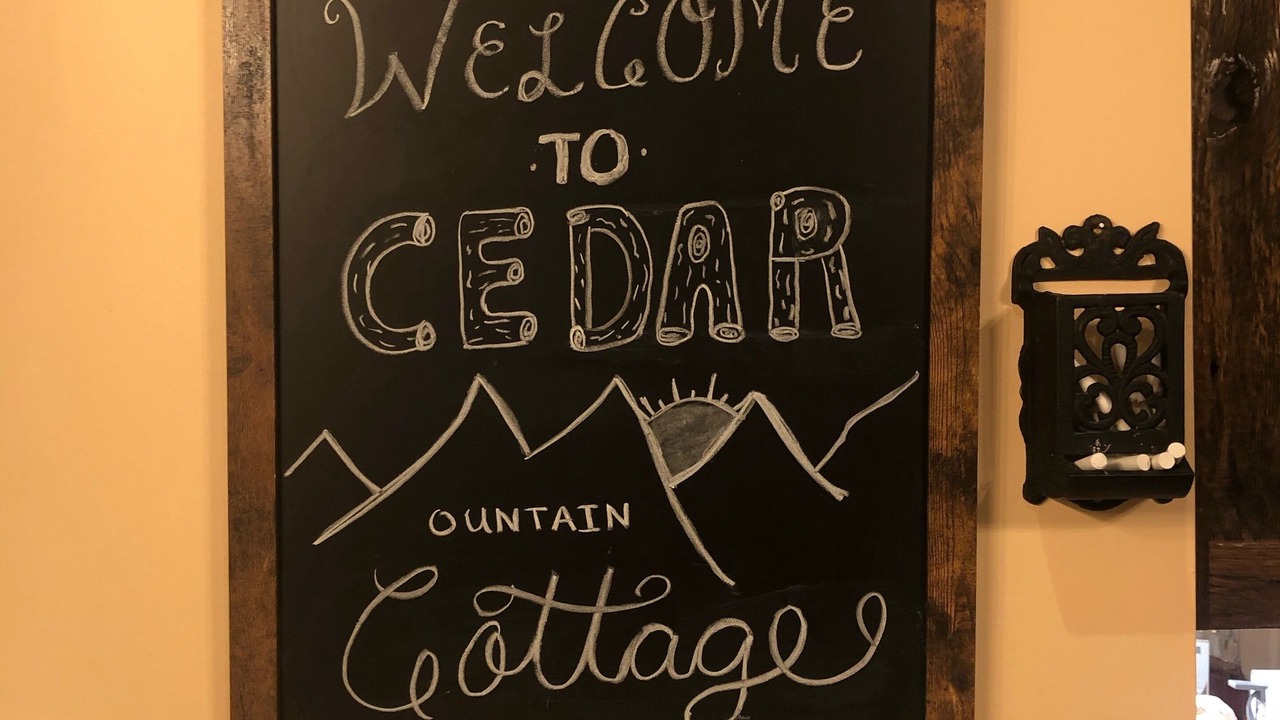 WELCOME
TO
CEDAR
OUNTAIN
Cottage